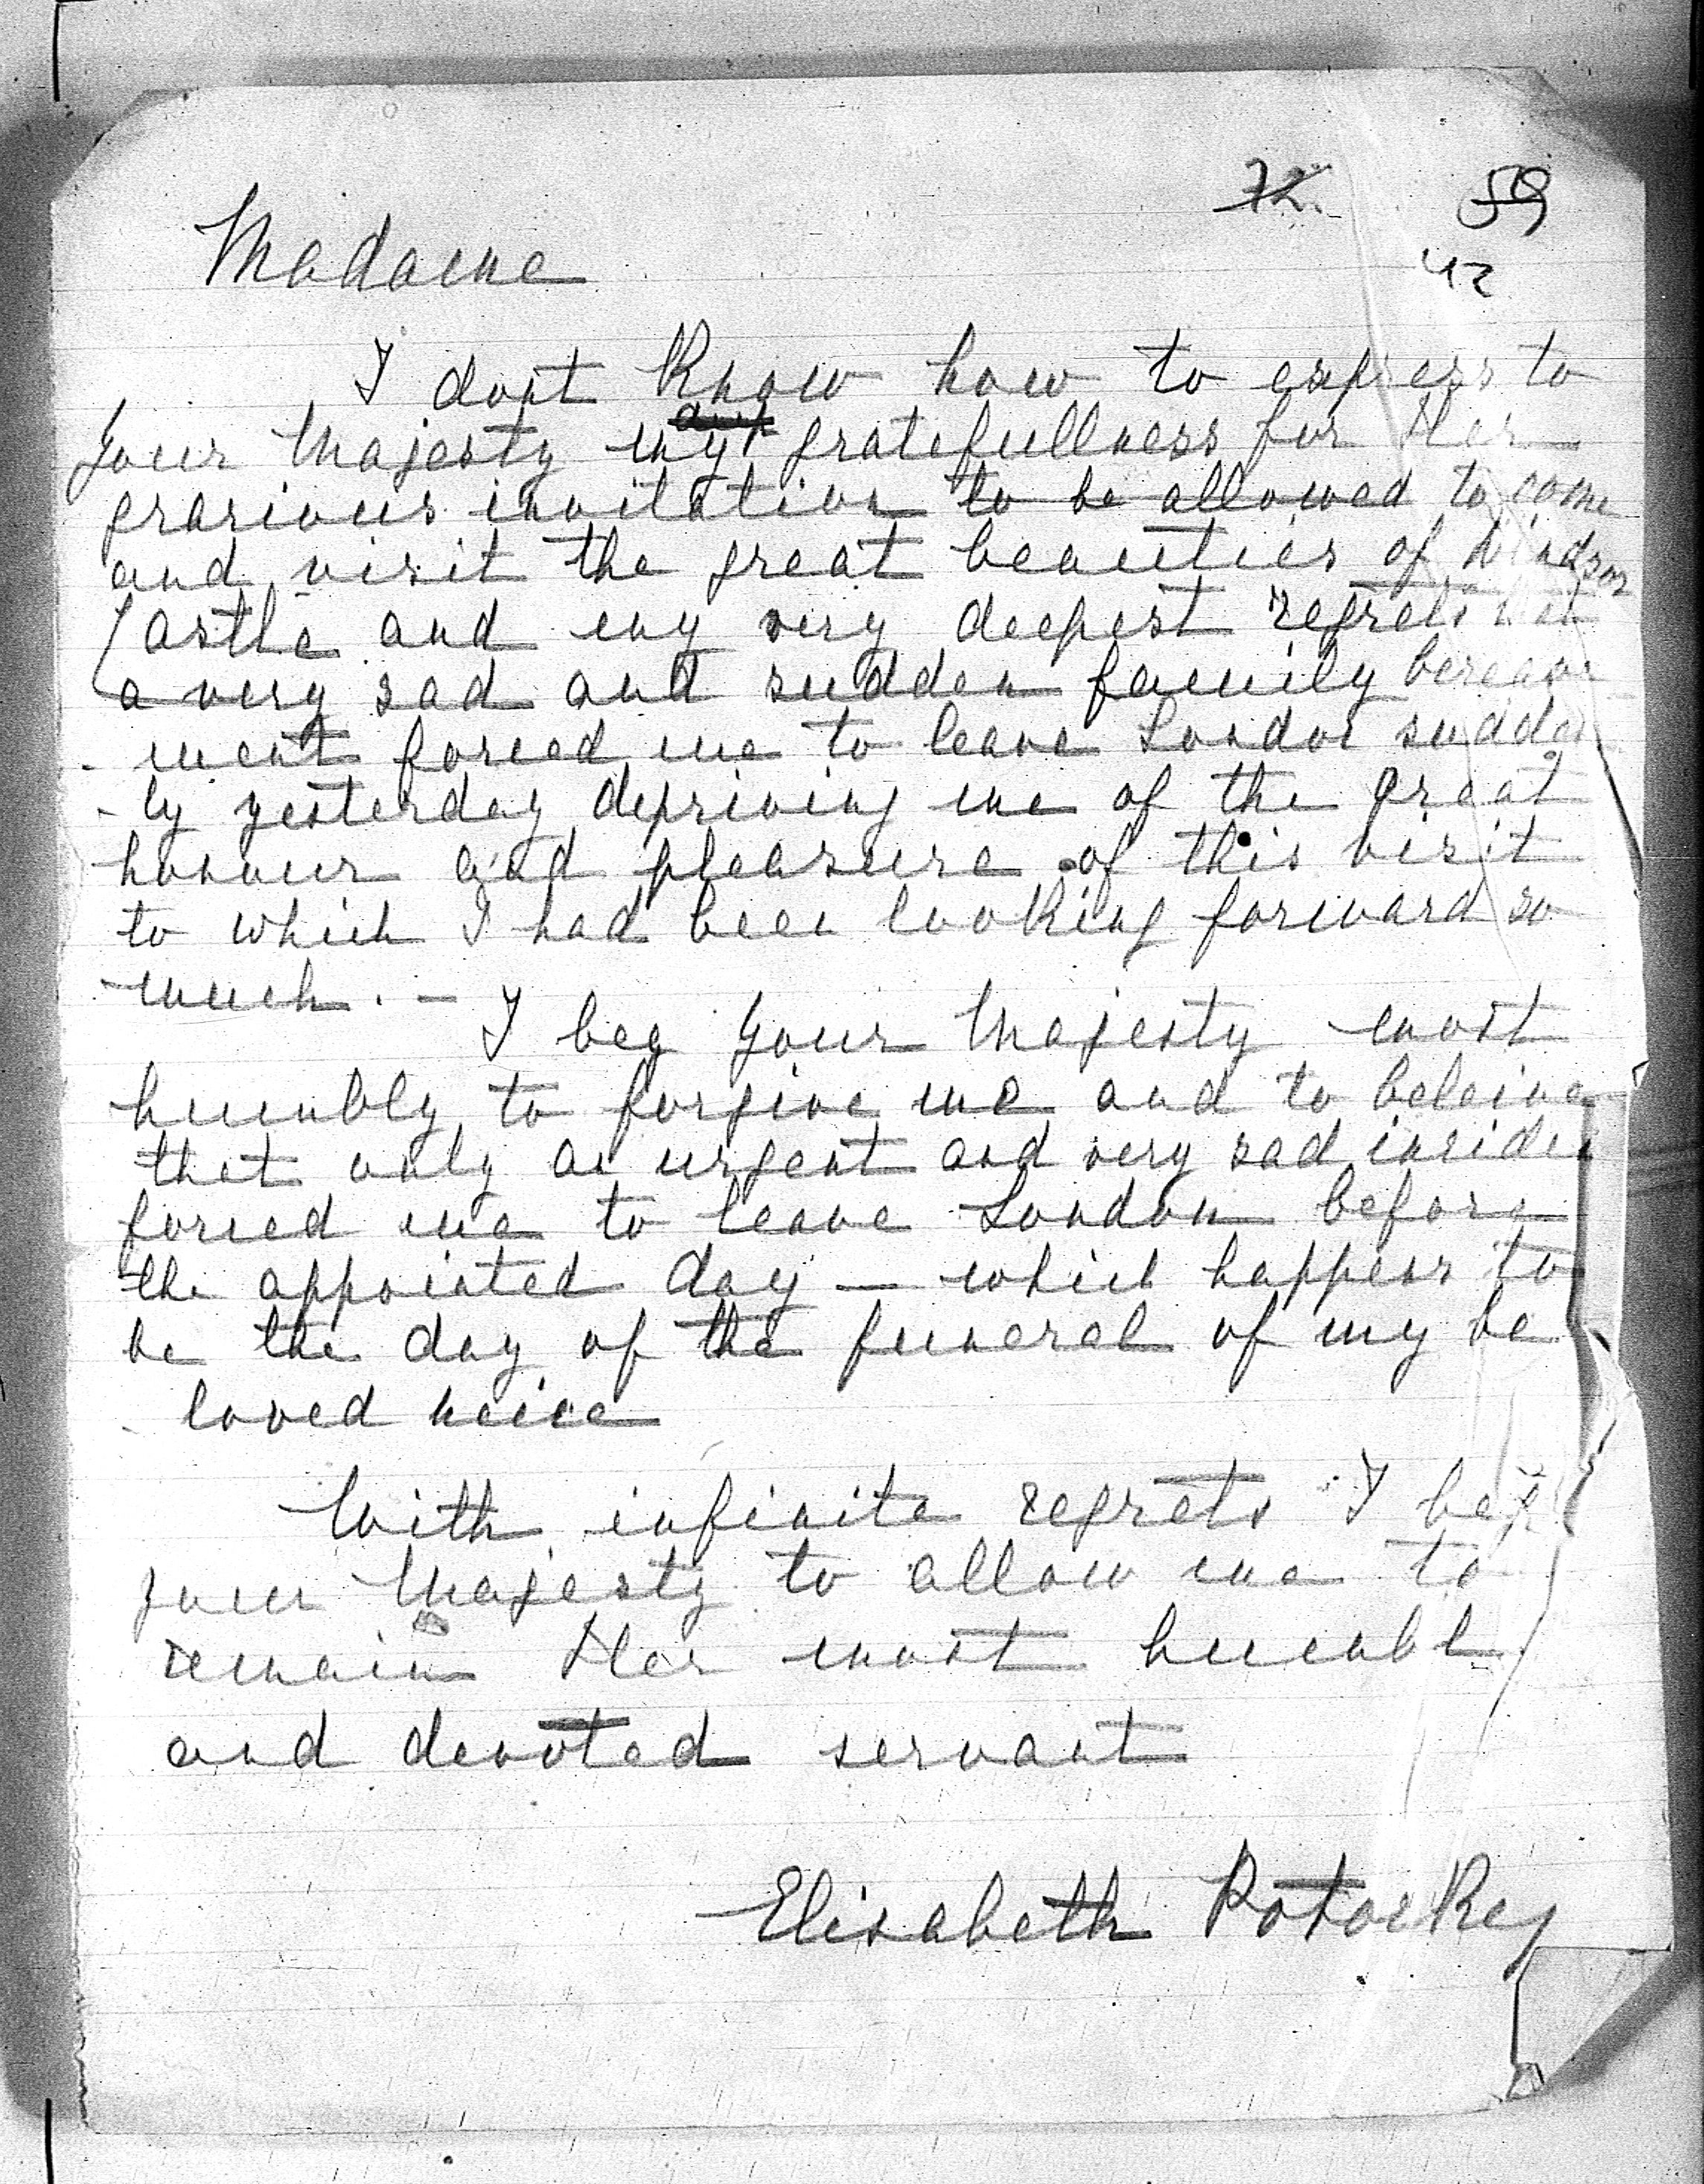 72. 59
42
Madame
I dont Know how to express to
Your Majesty my gratefullness for Her
gracious invitation to be allowed to come
and visit the great beauties of Windsor
Castle and my very deepest regrets that
a very sad and sudden family bereave
- ment forced me to leave London sudden
- ly yesterday depriving me of the great
honour and pleasure of this visit
to which I had been looking forward so
much. —
I beg Your Majesty most
humbly to forgive me and to beleive
that only an urgent and very sad incident
forced me to leave London before
the appointed day — which happens to
be the day of the funeral of my be
- loved neice
With infinite regrets I beg
your Majesty to allow me to
remain Her most humbl
and devoted servant
Elisabeth Potocky